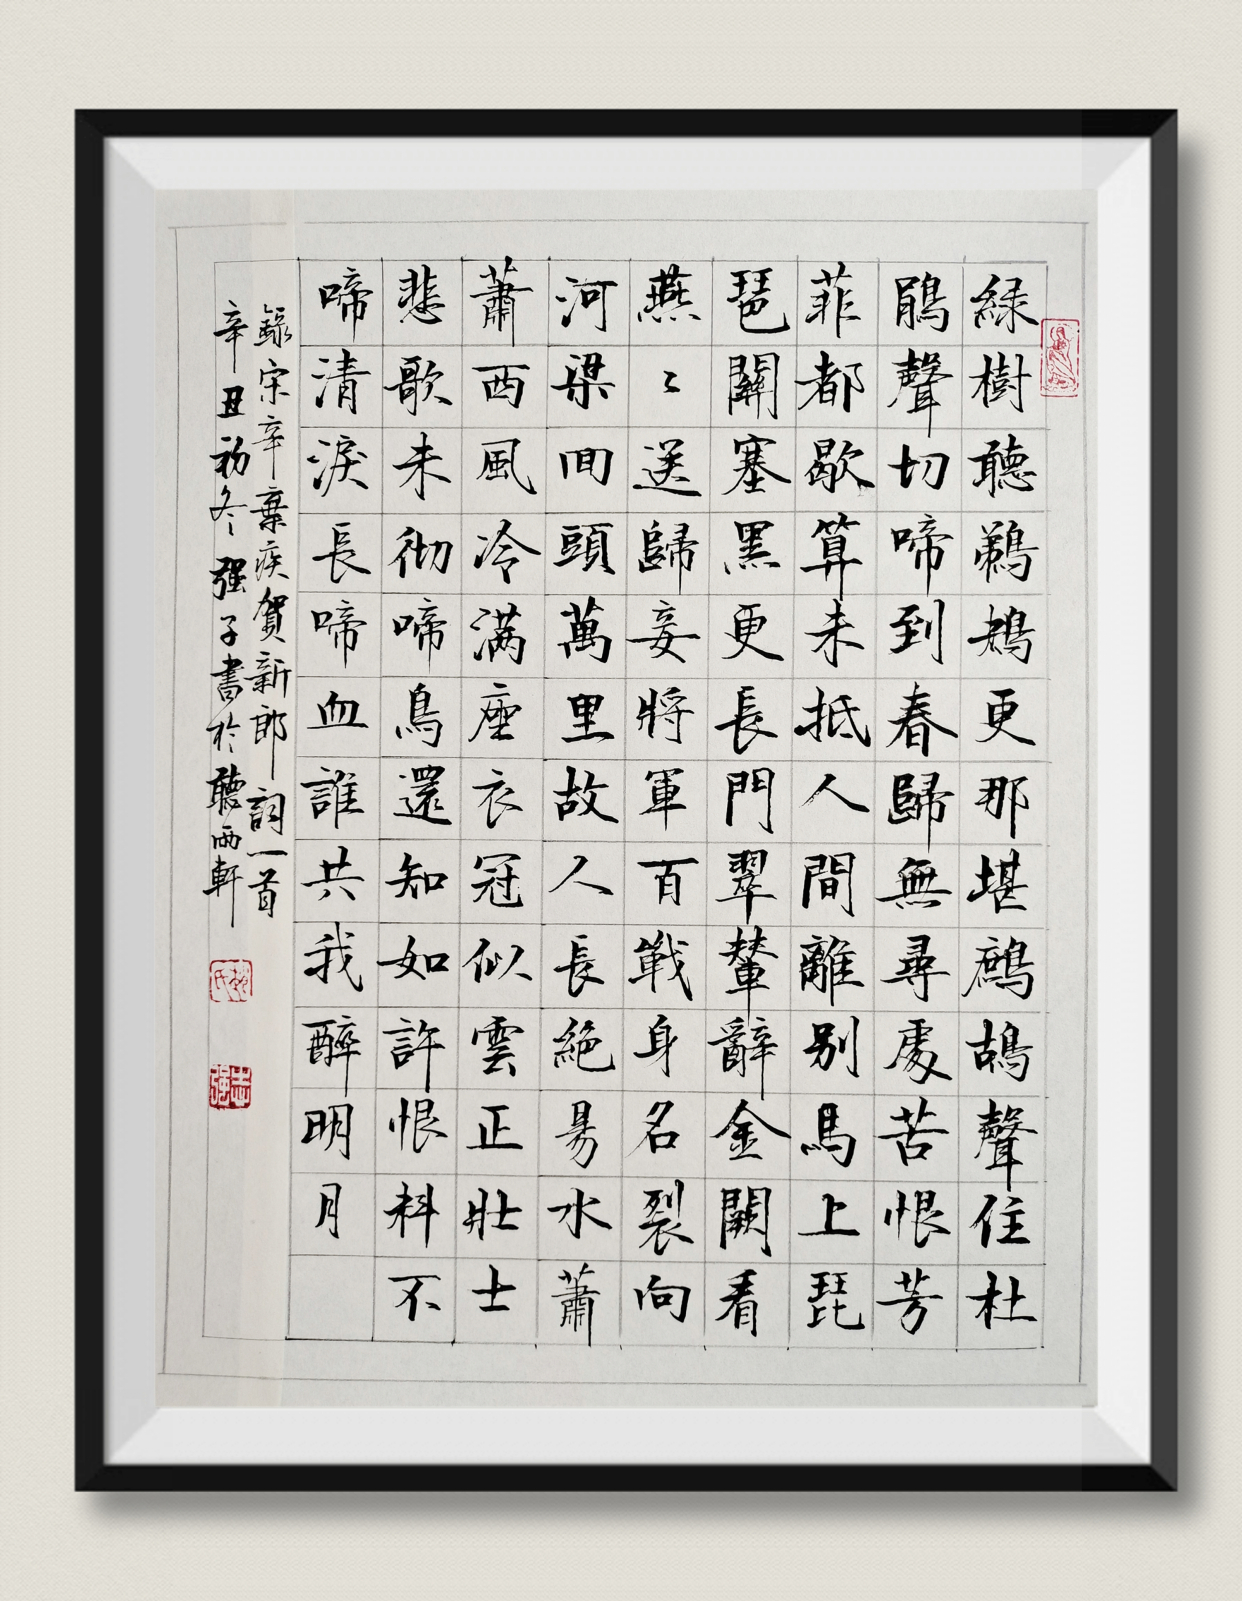 綠樹聽鵜鴂更那堪鷓鴣聲住杜
鵑聲切啼到春歸無尋處苦恨芳
菲都歇算未抵人間離別馬上琵
琶關塞黑更長門翠輦辭金闕看
燕〻送歸妾將軍百戰身名裂向
河梁回頭萬里故人長絕易水蕭
蕭西風冷满座衣冠似雲正壯士
悲歌未彻啼鳥還知如許恨料不
啼清淚長啼血誰共我醉明月
錄宋辛棄疾賀新郎詞一首
辛丑初冬强子書於聽雨軒
志强